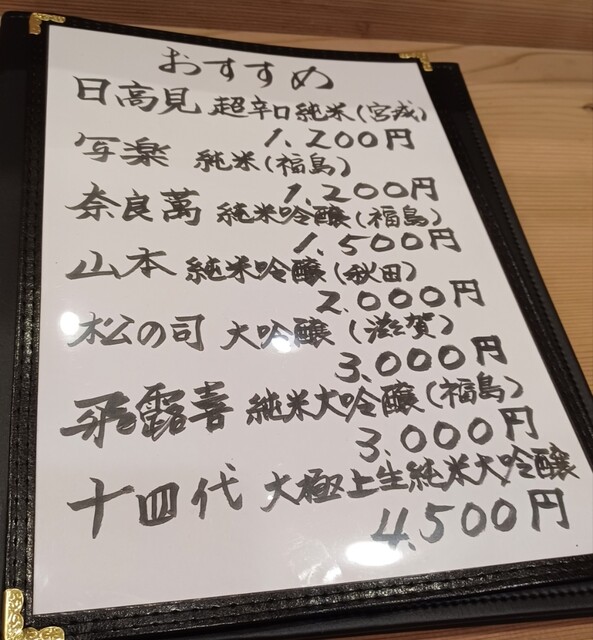 おすすめ
日高見 超辛口純米(宮城)
1,200円
写楽 純米(福島)
1,200円
奈良萬 純米吟醸(福島)
1,500円
山本 純米吟醸(秋田)
2,000円
松の司 大吟醸(滋賀)
3,000円
飛露喜 純米大吟醸(福島)
3,000円
十四代 大極上生純米大吟醸
4,500円